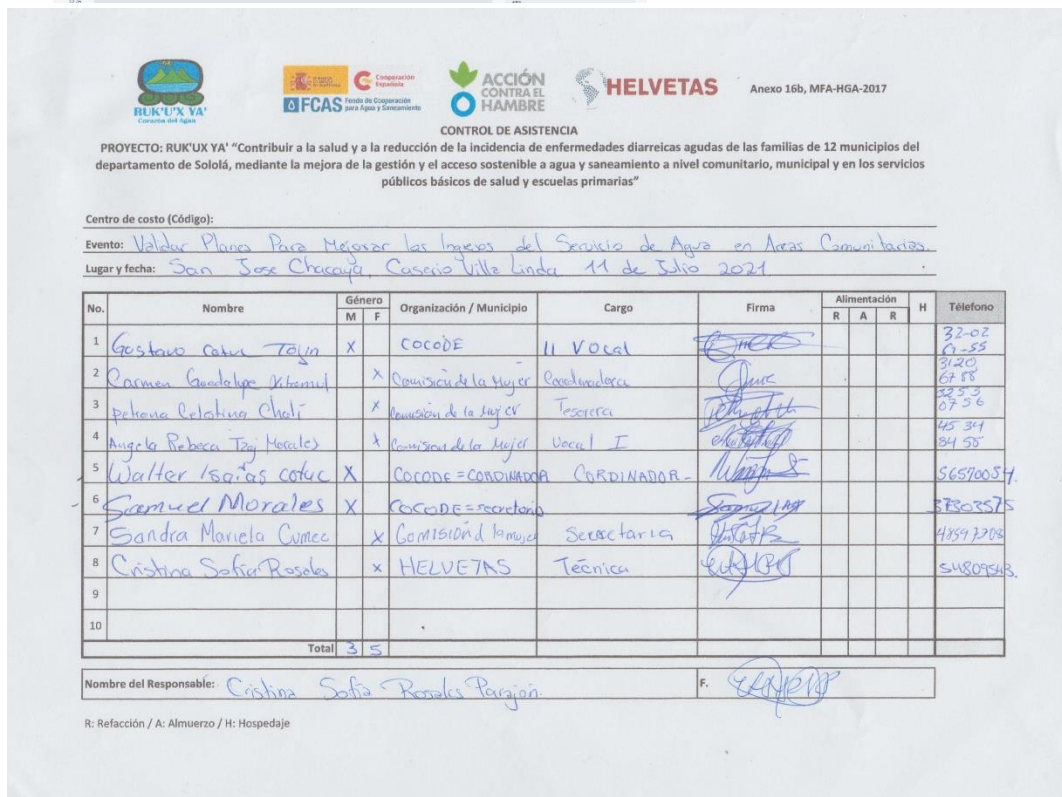 RUK'U'X YA'
Corazón del Agua
Cooperación Española
FCAS Fondo de Cooperación para Agua y Saneamiento
ACCIÓN CONTRA EL HAMBRE
HELVETAS
Anexo 16b, MFA-HGA-2017
CONTROL DE ASISTENCIA
PROYECTO: RUK'UX YA' "Contribuir a la salud y a la reducción de la incidencia de enfermedades diarreicas agudas de las familias de 12 municipios del
departamento de Sololá, mediante la mejora de la gestión y el acceso sostenible a agua y saneamiento a nivel comunitario, municipal y en los servicios
públicos básicos de salud y escuelas primarias"
Centro de costo (Código):
Evento: Valdar Planes Para Mejorar los Ingresos del Servicio de Agua en Areas Comunitarias.
Lugar y fecha: San Jose Chacayá, Caserio Villa Linda 11 de Julio 2021
No. Nombre Género M F Organización / Municipio Cargo Firma Alimentación R A R H Télefono
1 Gustavo Cotuc X COCODE II VOCal 32-02
2 Carmen Guadalupe X Comisión de la Mujer Coordinadora 3120 6788
3 Celestina Chalí X Comisión de la Mujer Tesorera 0756
4 Angela Rebeca Morales X Comision de la Mujer Vocal I 45 34
5 Walter Isaías cotuc X COCODE=CORDINADOR CORDINADOR- 56570054.
6 Samuel Morales X COCODE=secretorio 37303575
7 Sandra Mariela Cumec X Comisión d la mujer Secretaria
8 Cristina Sofía Rosales X HELVETAS Técnica 54809543.
9
10
Total 3 5
Nombre del Responsable: Cristina Sofía Rosales Parajón. F.
R: Refacción / A: Almuerzo / H: Hospedaje